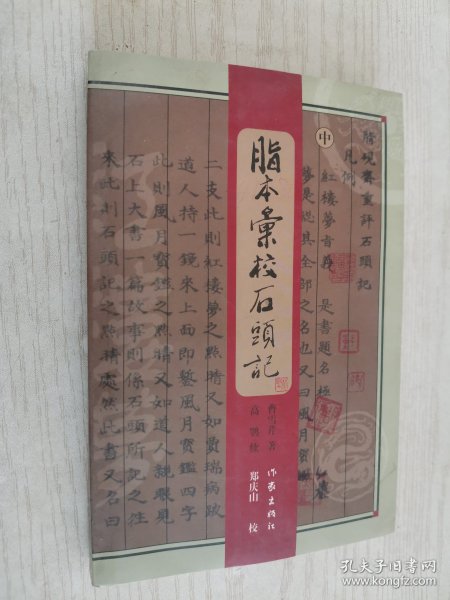 中
脂本彙校石頭記
曹雪芹 著
高鶚 続
郑庆山 校
作家出版社
脂硯齋重評石頭記
凡例
紅樓夢旨義 是書題名極
夢是總其全部之名也又曰風月寶
二支此則紅樓夢之點睛又如賈瑞病跛
道人持一鏡來上面即鏨風月寶鑑四字
此則風月寶鑑之點睛又如道人親眼見
石上大書一篇故事則係石頭所記之往
來此則石頭記之點睛處然此書又名曰
孔夫子旧书网
www.kongfz.com